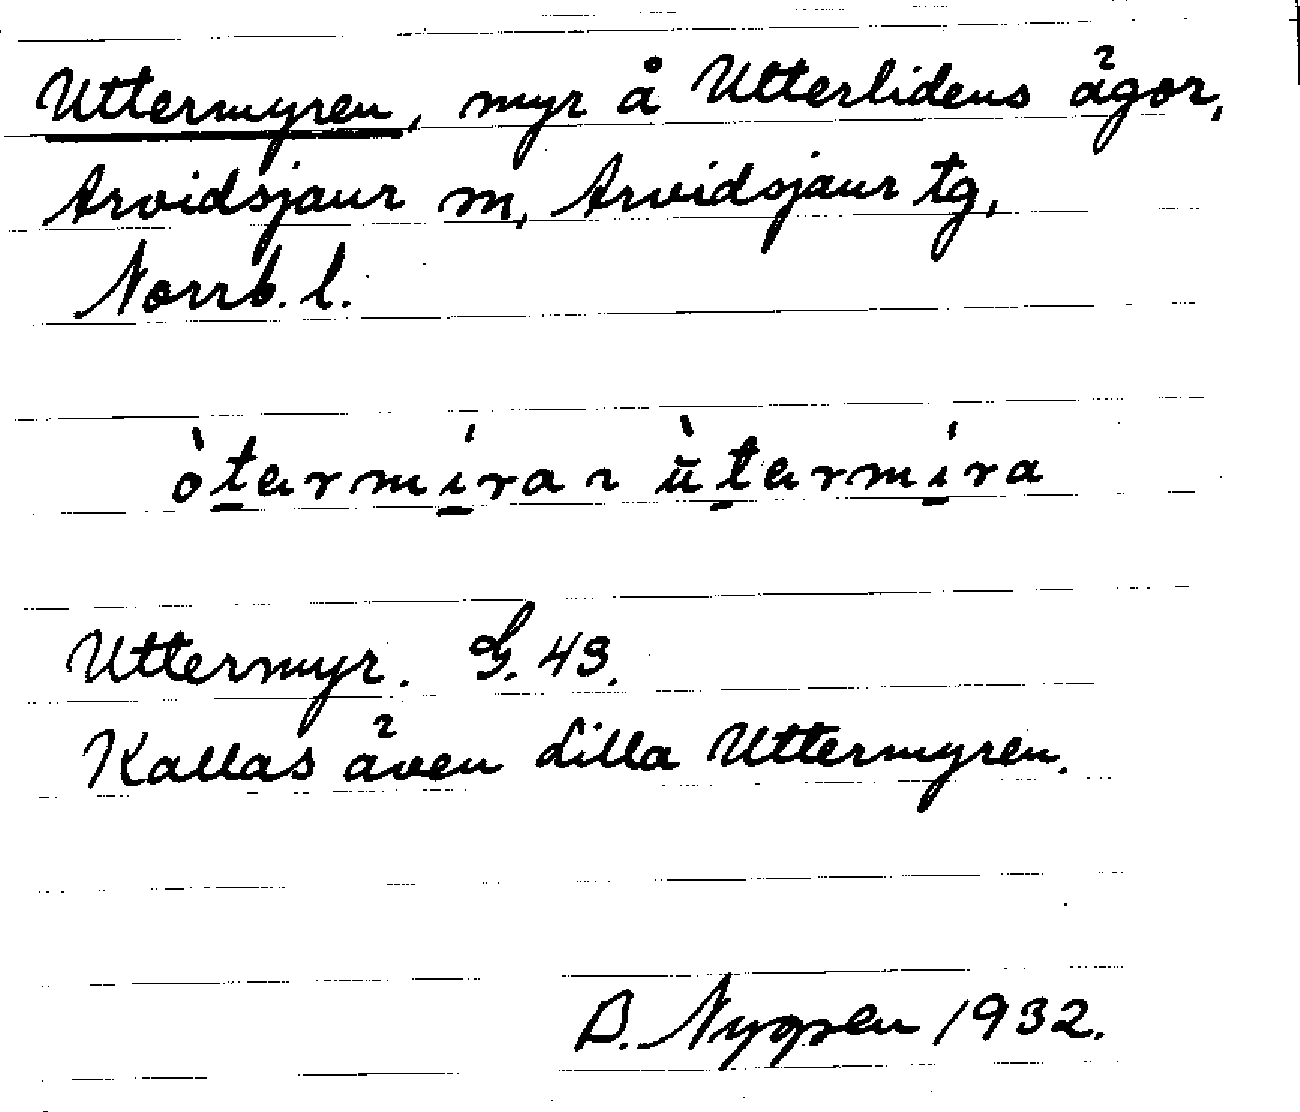 Uttermyren, myr å Utterlidens ägor,
Arvidsjaur sn, Arvidsjaur tg,
Norrb. l.
òtermíra ~ ùtermíra
Uttermyr. G. 43.
Kallas även Lilla Uttermyren.
B. Nygren 1932.